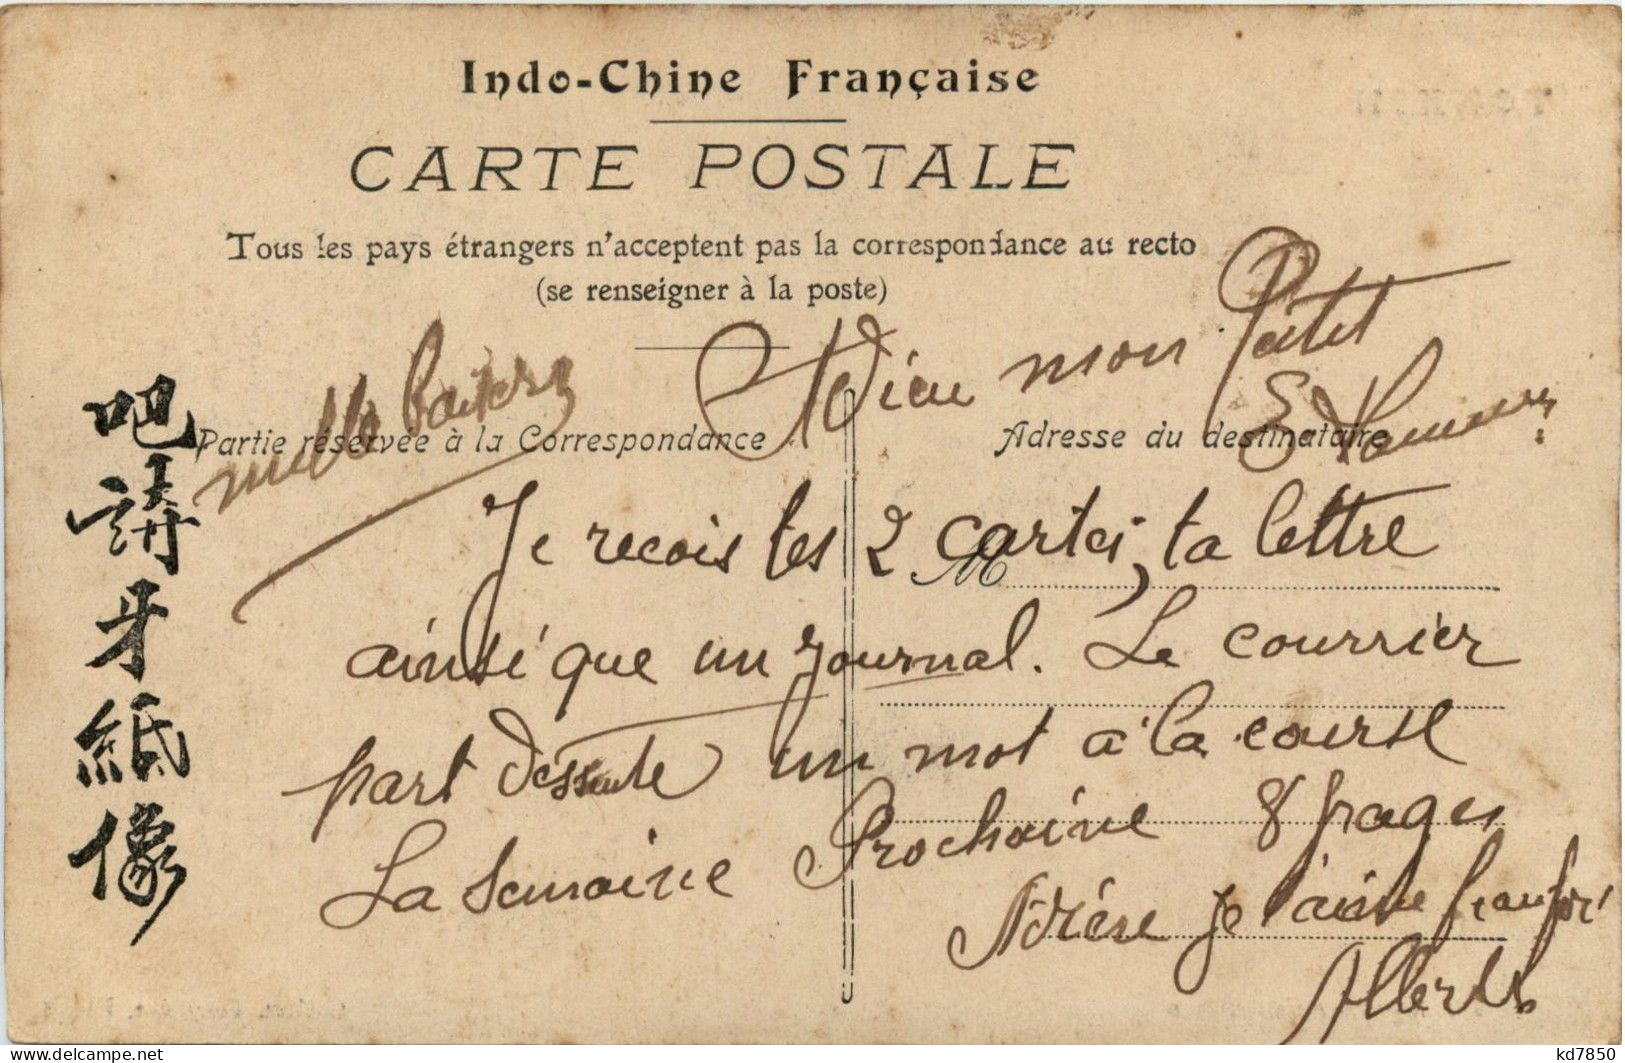 Indo-Chine Française
CARTE POSTALE
Tous les pays étrangers n'acceptent pas la correspondance au recto
(se renseigner à la poste)
吧請牙紙像
Partie réservée à la Correspondance
Adresse du destinataire
mille baisers
Adieu mon Petit
Je recois tes 2 cartes, ta lettre
M
ainsi que un journal. Le courrier
part dessuite un mot à la course
La Semaine Prochaine 8 pages
je t'aime
Albert
kd7850
delcampe.net